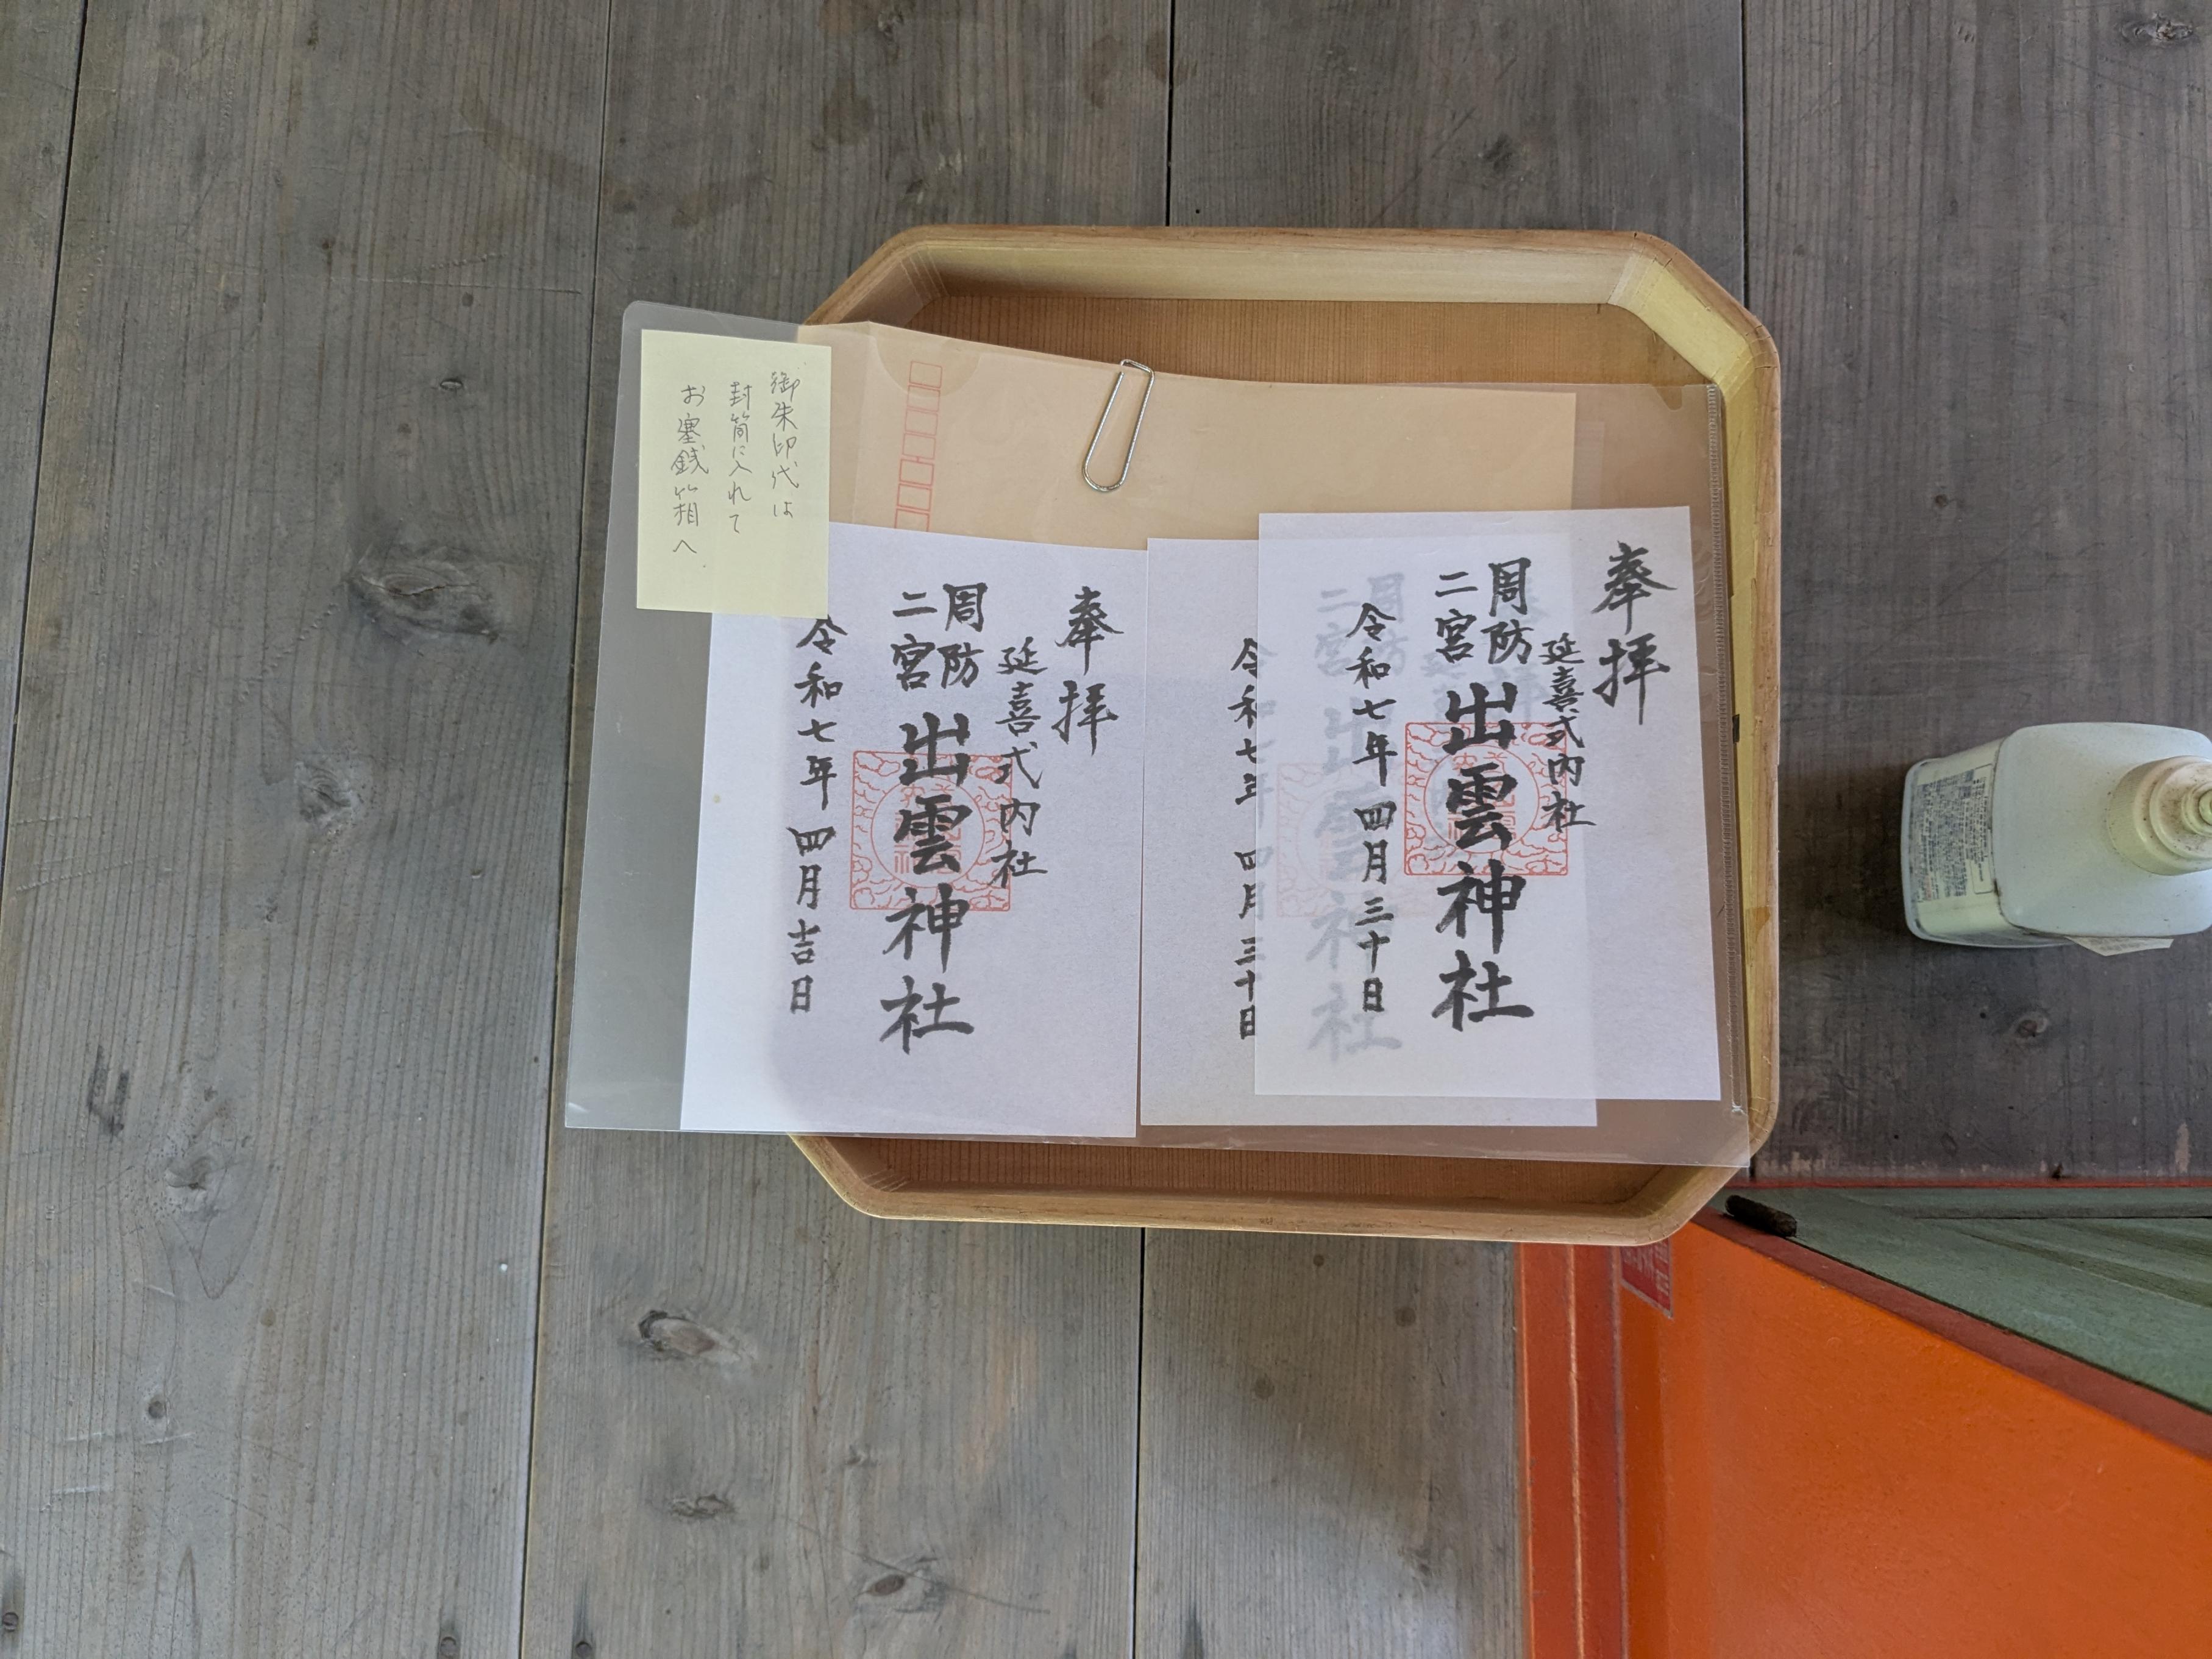 御朱印代は
封筒に入れて
お賽銭箱へ
奉拝
延喜式内社
周防
二宮
出雲神社
令和七年四月三十日
令和七年四月三十日
奉拝
延喜式内社
周防
二宮
出雲神社
令和七年四月吉日